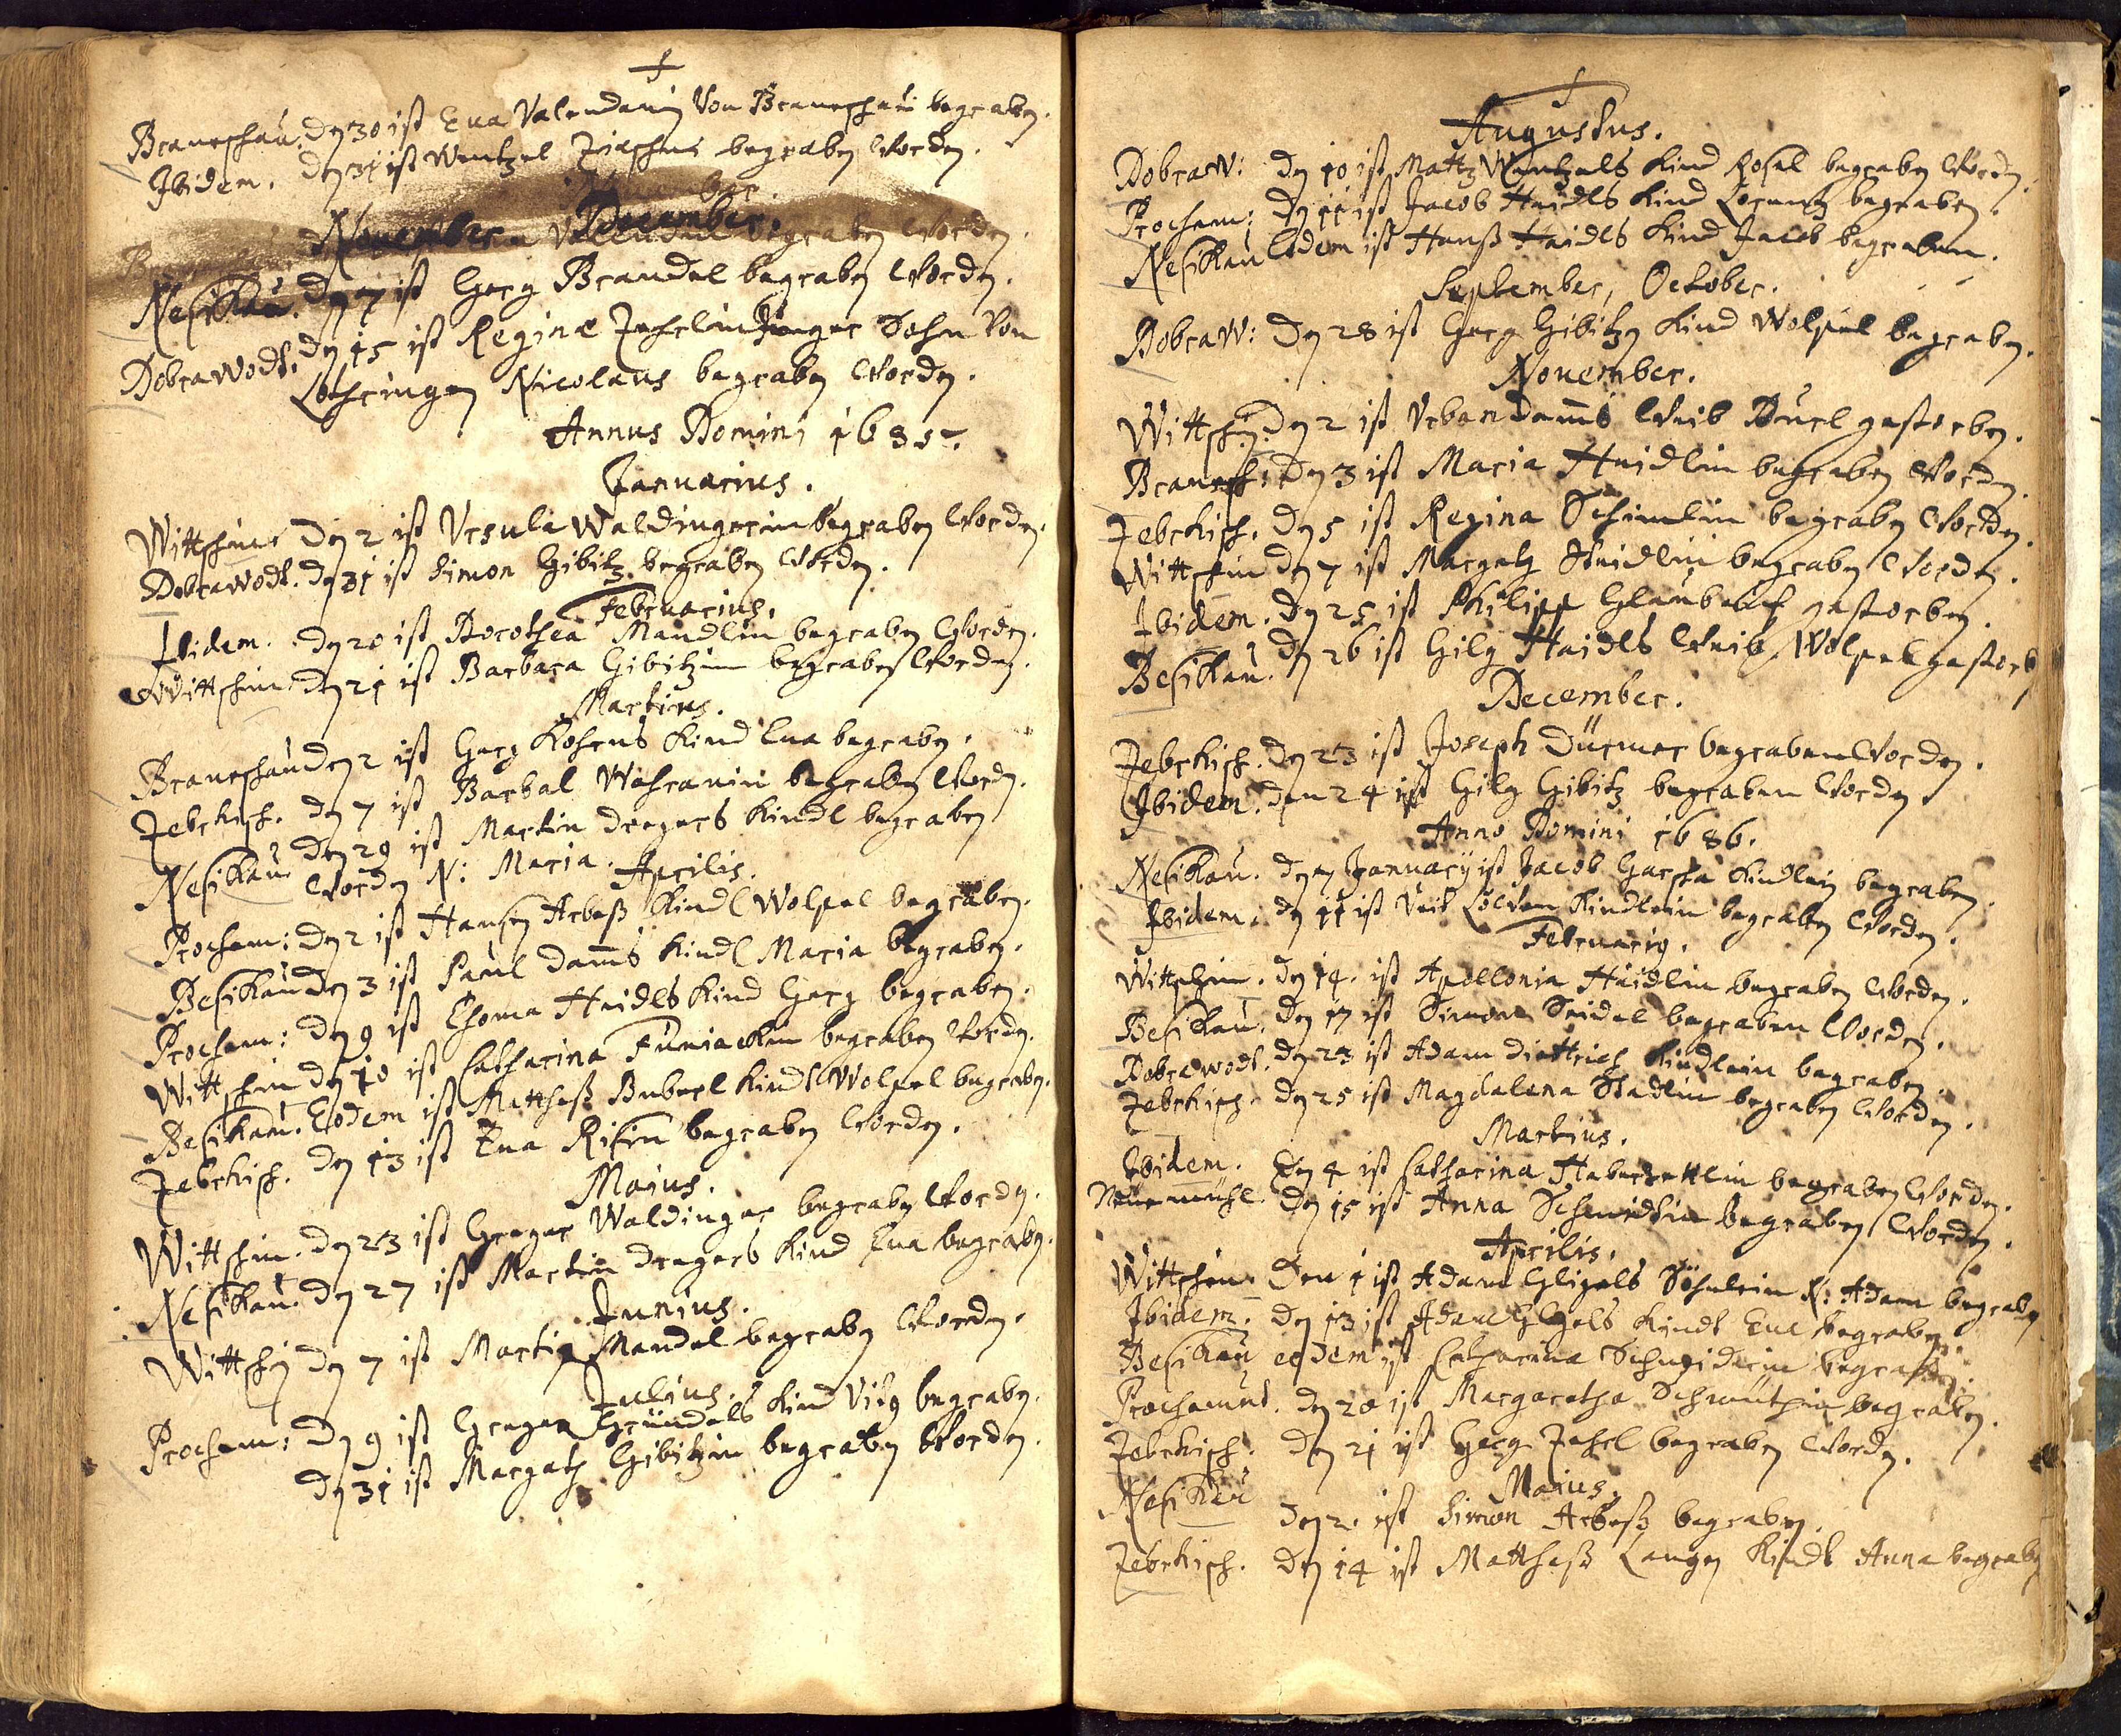 Braneschau. den 30 ist Eua Valendanin Von Braneschau begraben.
Ibidem. den 31 ist Wentzel begraben Worden.
November. December.
Nesikau. den 7 ist Georg Brandel begraben Worden.
Dobrawodt. den 15 ist Reginæ Sohn Von
Lothringen Nicolaus begraben Worden.
Annus Domini 1685.
Januarius.
Wittschin den 2 ist Vrsula Waldingerin begraben Worden.
Dobrawodt. den 31 ist Simon Gibitz begraben Worden.
Februarius.
Ibidem. den 20 ist Dorothea Mandlin begraben Worden.
Wittschin. den 21 ist Barbara Gibitzin begraben Worden.
Martius.
Braneschau den 2 ist Georg Kind Eua begraben.
Jebrhisch. den 7 ist Barbal begraben Worden.
Nesikau den 29 ist Martin Dregers Kindl begraben
Worden N: Maria.
Aprilis.
Procham: den 2 ist Hansen Arbeß Kindl Wolpel begraben.
Besikau den 3 ist Paul Dam̄s Kindl Maria begraben.
Procham: den 9 ist Thoma Haidls Kind Georg begraben.
Wittschin den 10 ist Catharina begraben Worden.
Besikau. Eodem ist Mattheß Kindl Wolpel begraben.
Jebrhisch. den 13 ist Eua begraben Worden.
Maius.
Wittschin. den 23 ist Greger Waldinger begraben Worden.
Nesikau. den 27 ist Martin Dregers Kind Eua begraben.
Junius.
Wittschin den 7 ist Martin Mandel begraben Worden.
Julius.
Procham: den 9 ist Greger Gründels Kind begraben.
den 31 ist Margath Gibitzin begraben Worden.
Augustus.
Dobraw: den 10 ist Mattz Wentzels Kind Rosel begraben Worden.
Procham: den 11 ist Jacob Haidls Kind Lorentz begraben.
Nesikau Eodem ist Hanß Haidls Kind Jacob begraben.
September, October.
Dobraw: den 28 ist Georg Gibitzn Kind Wolpel begraben.
November.
Wittschin. den 2 ist Vrban Dam̄s Weib gestorben.
Branesch: den 3 ist Maria Haidlin begraben Worden.
Jebrhisch. den 5 ist Regina begraben Worden.
Wittschin den 7 ist Margath Haidlin begraben Worden.
Ibidem. den 25 ist Philipp gestorben.
Besikau. den 26 ist Gilg Haidls Weib Wolpel gestorb
December.
Jebrhisch. den 23 ist Joseph Dürner begraben Worden.
Ibidem. den 24 ist Gilg Gibitz begraben Worden
Anno Domini 1686.
Nesikau. den 7 Januarij ist Jacob Kindlein begraben.
Ibidem. den 11 ist Veit Kindlein begraben Worden.
Februarius.
Wittschin. den 14. ist Apollonia Haidlin begraben Worden.
Besikau. den 17 ist Simon Seidel begraben Worden.
Dobrawodt. den 23 ist Adam Diettrich Kindlein begraben.
Jebrhisch. den 25 ist Magdalena Stadlin begraben Worden.
Martius.
Ibidem. den 4 ist Catharina begraben Worden.
Neuemühl. den 15 ist Anna Schmidtin begraben Worden.
Aprilis.
Wittschin. den 1 ist Adam Söhnlein N: Adam begraben
Ibidem. den 13 ist Adam Kindl Eua begraben.
Besikau eodem ist Catharina Schneiderin begraben.
Prochamut. den 20 ist Margaretha begraben.
Jebrhisch. den 21 ist Georg begraben Worden.
Maius.
Nesikau den 2. ist Simon Arbeß begraben.
Jebrhisch. den 14 ist Mattheß Langen Kindl Anna begraben